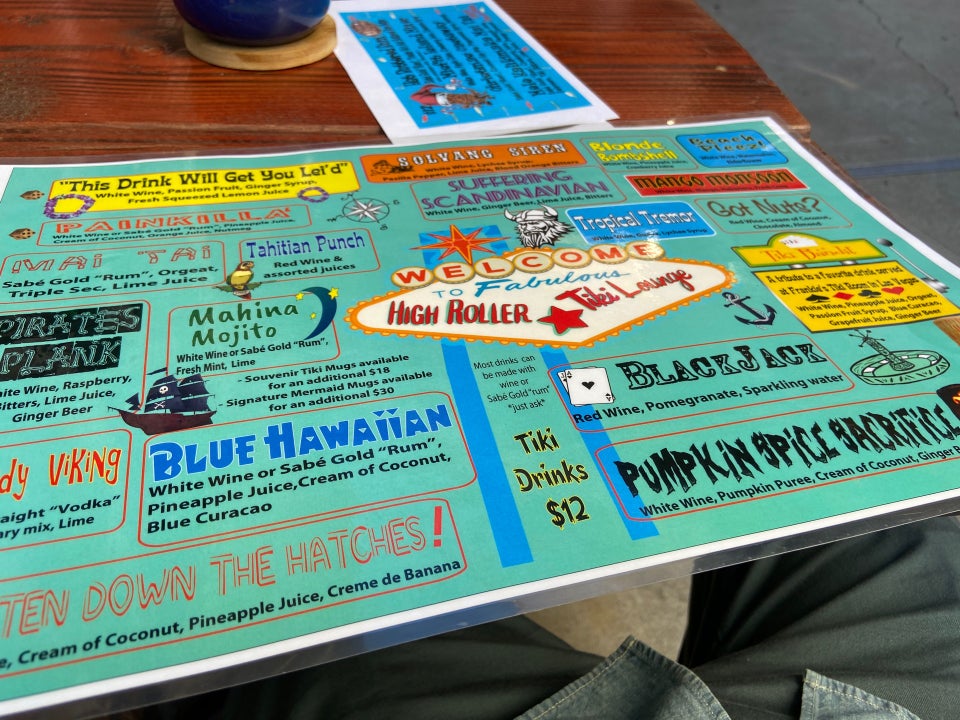 "This Drink Will Get You Lei'd"
White Wine, Passion Fruit, Ginger Syrup,
Fresh Squeezed Lemon Juice
SOLVANG SIREN
White Wine, Lychee Syrup,
Pasilla Pepper, Lime Juice, Blood Orange Bitters
Blonde
Bombshell
Beach
Pleez!
PAINKILLA
Gold "Rum", Pineapple Juice,
Cream of Coconut, Orange Juice, Nutmeg
SUFFERING
SCANDINAVIAN
White Wine, Ginger Beer, Lime Juice, Bitters
MANGO MONSOON
MAI TAI
Sabé Gold "Rum", Orgeat,
Triple Sec, Lime Juice
Tahitian Punch
Red Wine &
assorted juices
Tropical Tremor
Lychee Syrup
Got Nuts?
Red Wine, Cream of
Coconut,
Lime Juice
WELCOME
TO Fabulous
HIGH ROLLER
Tiki Lounge
Tiki Bandit
A tribute to a favorite drink served
at Frankie's Tiki Room in Las Vegas
White Wine, Pineapple Juice, Orgeat,
Passion Fruit Syrup, Blue Curacao,
Grapefruit Juice, Ginger Beer
PIRATES
PLANK
Wine, Raspberry,
Bitters, Lime Juice,
Ginger Beer
Mahina
Mojito
White Wine or Sabé Gold "Rum",
Fresh Mint, Lime
- Souvenir Tiki Mugs available
for an additional $18
- Signature Mermaid Mugs available
for an additional $30
Most drinks can
be made with
wine or
Sabé Gold "rum"
*just ask*
BLACKJACK
Red Wine, Pomegranate, Sparkling water
VIKING
"Vodka"
mix, Lime
BLUE HAWAIIAN
White Wine or Sabé Gold "Rum",
Pineapple Juice, Cream of Coconut,
Blue Curacao
Tiki
Drinks
$12
PUMPKIN SPICE SACRIFICE
White Wine, Pumpkin Puree, Cream of Coconut, Ginger
DOWN THE HATCHES!
Cream of Coconut, Pineapple Juice, Creme de Banana